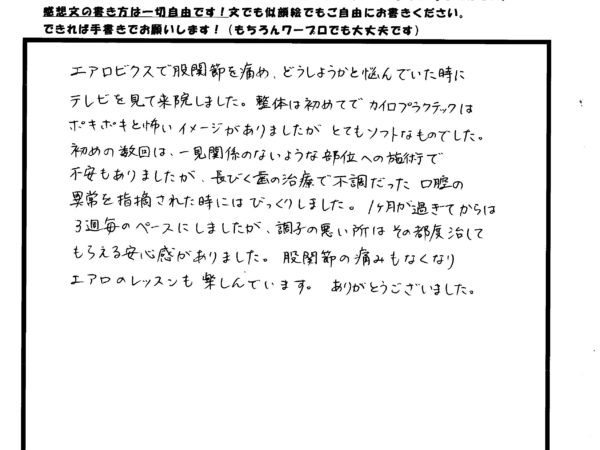 感想文の書き方は一切自由です！文でも似顔絵でもご自由にお書きください。
できれば手書きでお願いします！（もちろんワープロでも大丈夫です）
エアロビクスで股関節を痛め、どうしようかと悩んでいた時に
テレビを見て来院しました。整体は初めてで カイロプラクテックは
ポキポキと怖いイメージがありましたが とてもソフトなものでした。
初めの数回は、一見関係のないような部位への施術で
不安もありましたが、長びく歯の治療で不調だった 口腔の
異常を指摘された時には びっくりしました。1ヶ月が過ぎてからは
3週毎のペースにしましたが、調子の悪い所は その都度治して
もらえる安心感がありました。 股関節の痛みもなくなり
エアロのレッスンも 楽しんでいます。 ありがとうございました。